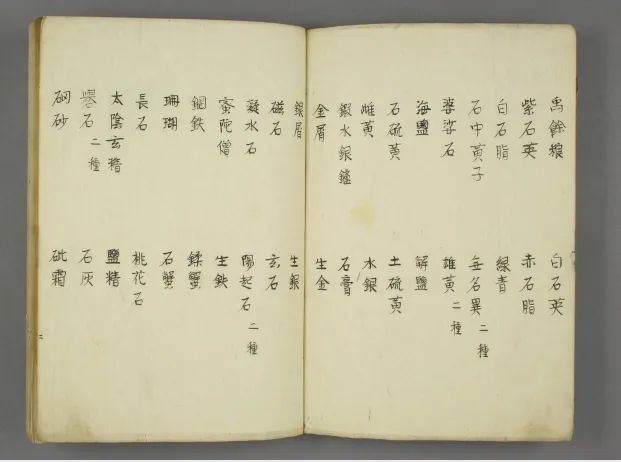 禹餘粮 白石英
紫石英 赤石脂
白石脂 綠青
石中黄子 無名異 二種
婆娑石 雄黄 二種
海鹽 解鹽
石硫黄 土硫黄
雌黄 水銀
水銀 石膏
金屑 生金
銀屑 生銀
磁石 玄石
凝水石 陽起石 二種
蜜陀僧 生鉄
鋼鉄
珊瑚 石蟹
長石 桃花石
太陰玄精 鹽精
礜石 二種 石灰
硇砂 砒霜